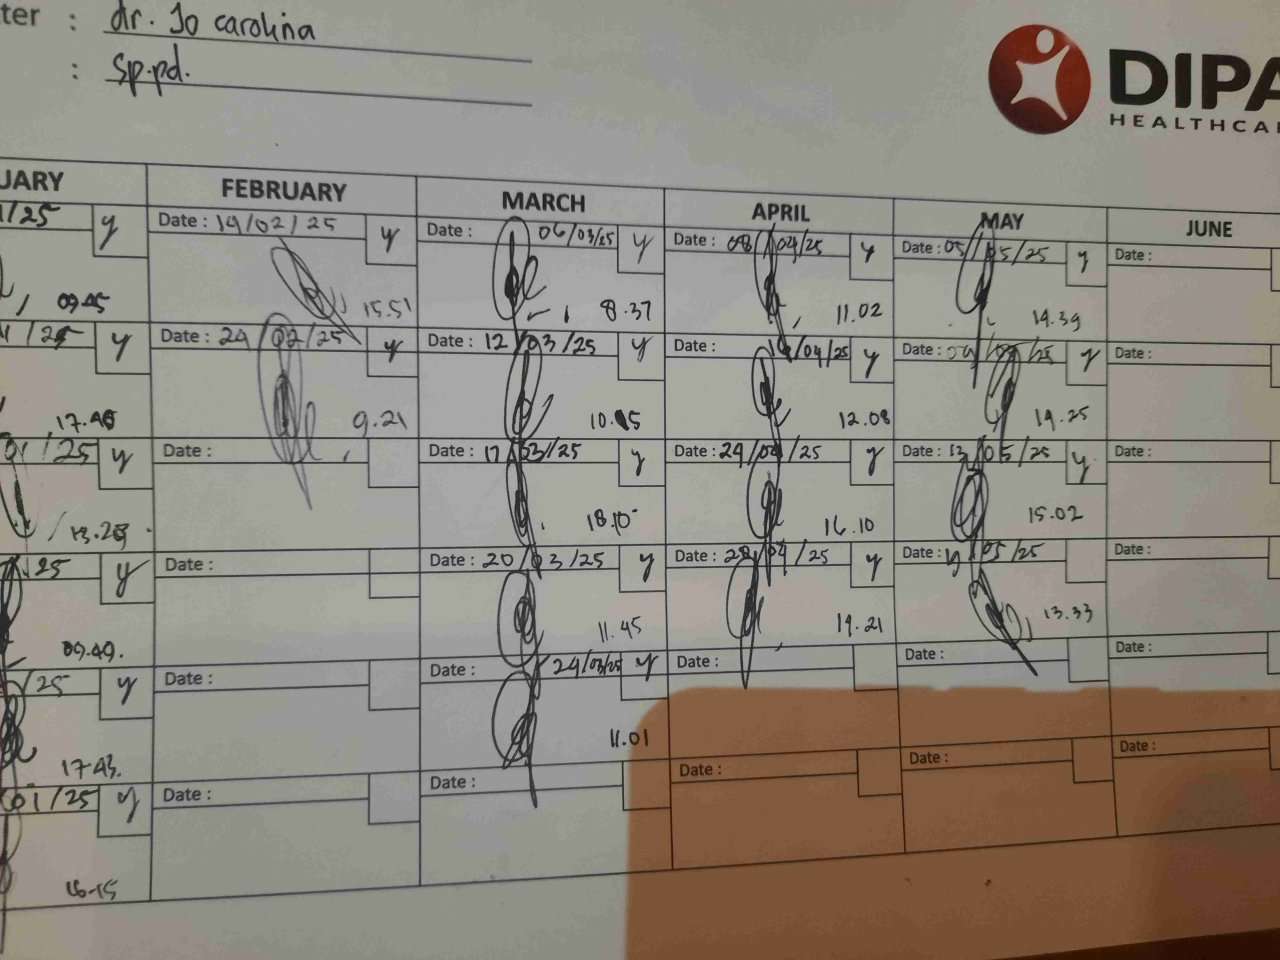 ter : dr. Jo carolina
: Sp.pd.
DIPA
HEALTHCAR
UARY FEBRUARY MARCH APRIL MAY JUNE
1/25 y Date : 19/02/25 y Date : 06/03/25 y Date : 08/04/25 y Date : 05/05/25 y Date :
09.45 15.51 8.37 11.02 14.39
/25 y Date : 24/02/25 y Date : 12/03/25 y Date : /04/25 y Date : /05/25 y Date :
17.40 9.21 10.15 12.08 14.25
01/25 y Date : Date : 17/03/25 y Date : 24/04/25 y Date : 13/05/25 y Date :
13.29 18.10 16.10 15.02
25 y Date : Date : 20/03/25 y Date : 28/04/25 y Date : /05/25 Date :
09.49. 11.45 14.21 13.33
/25 y Date : Date : 24/03/25 y Date : Date : Date :
17.43. 11.01
01/25 y Date : Date : Date : Date : Date :
16.15